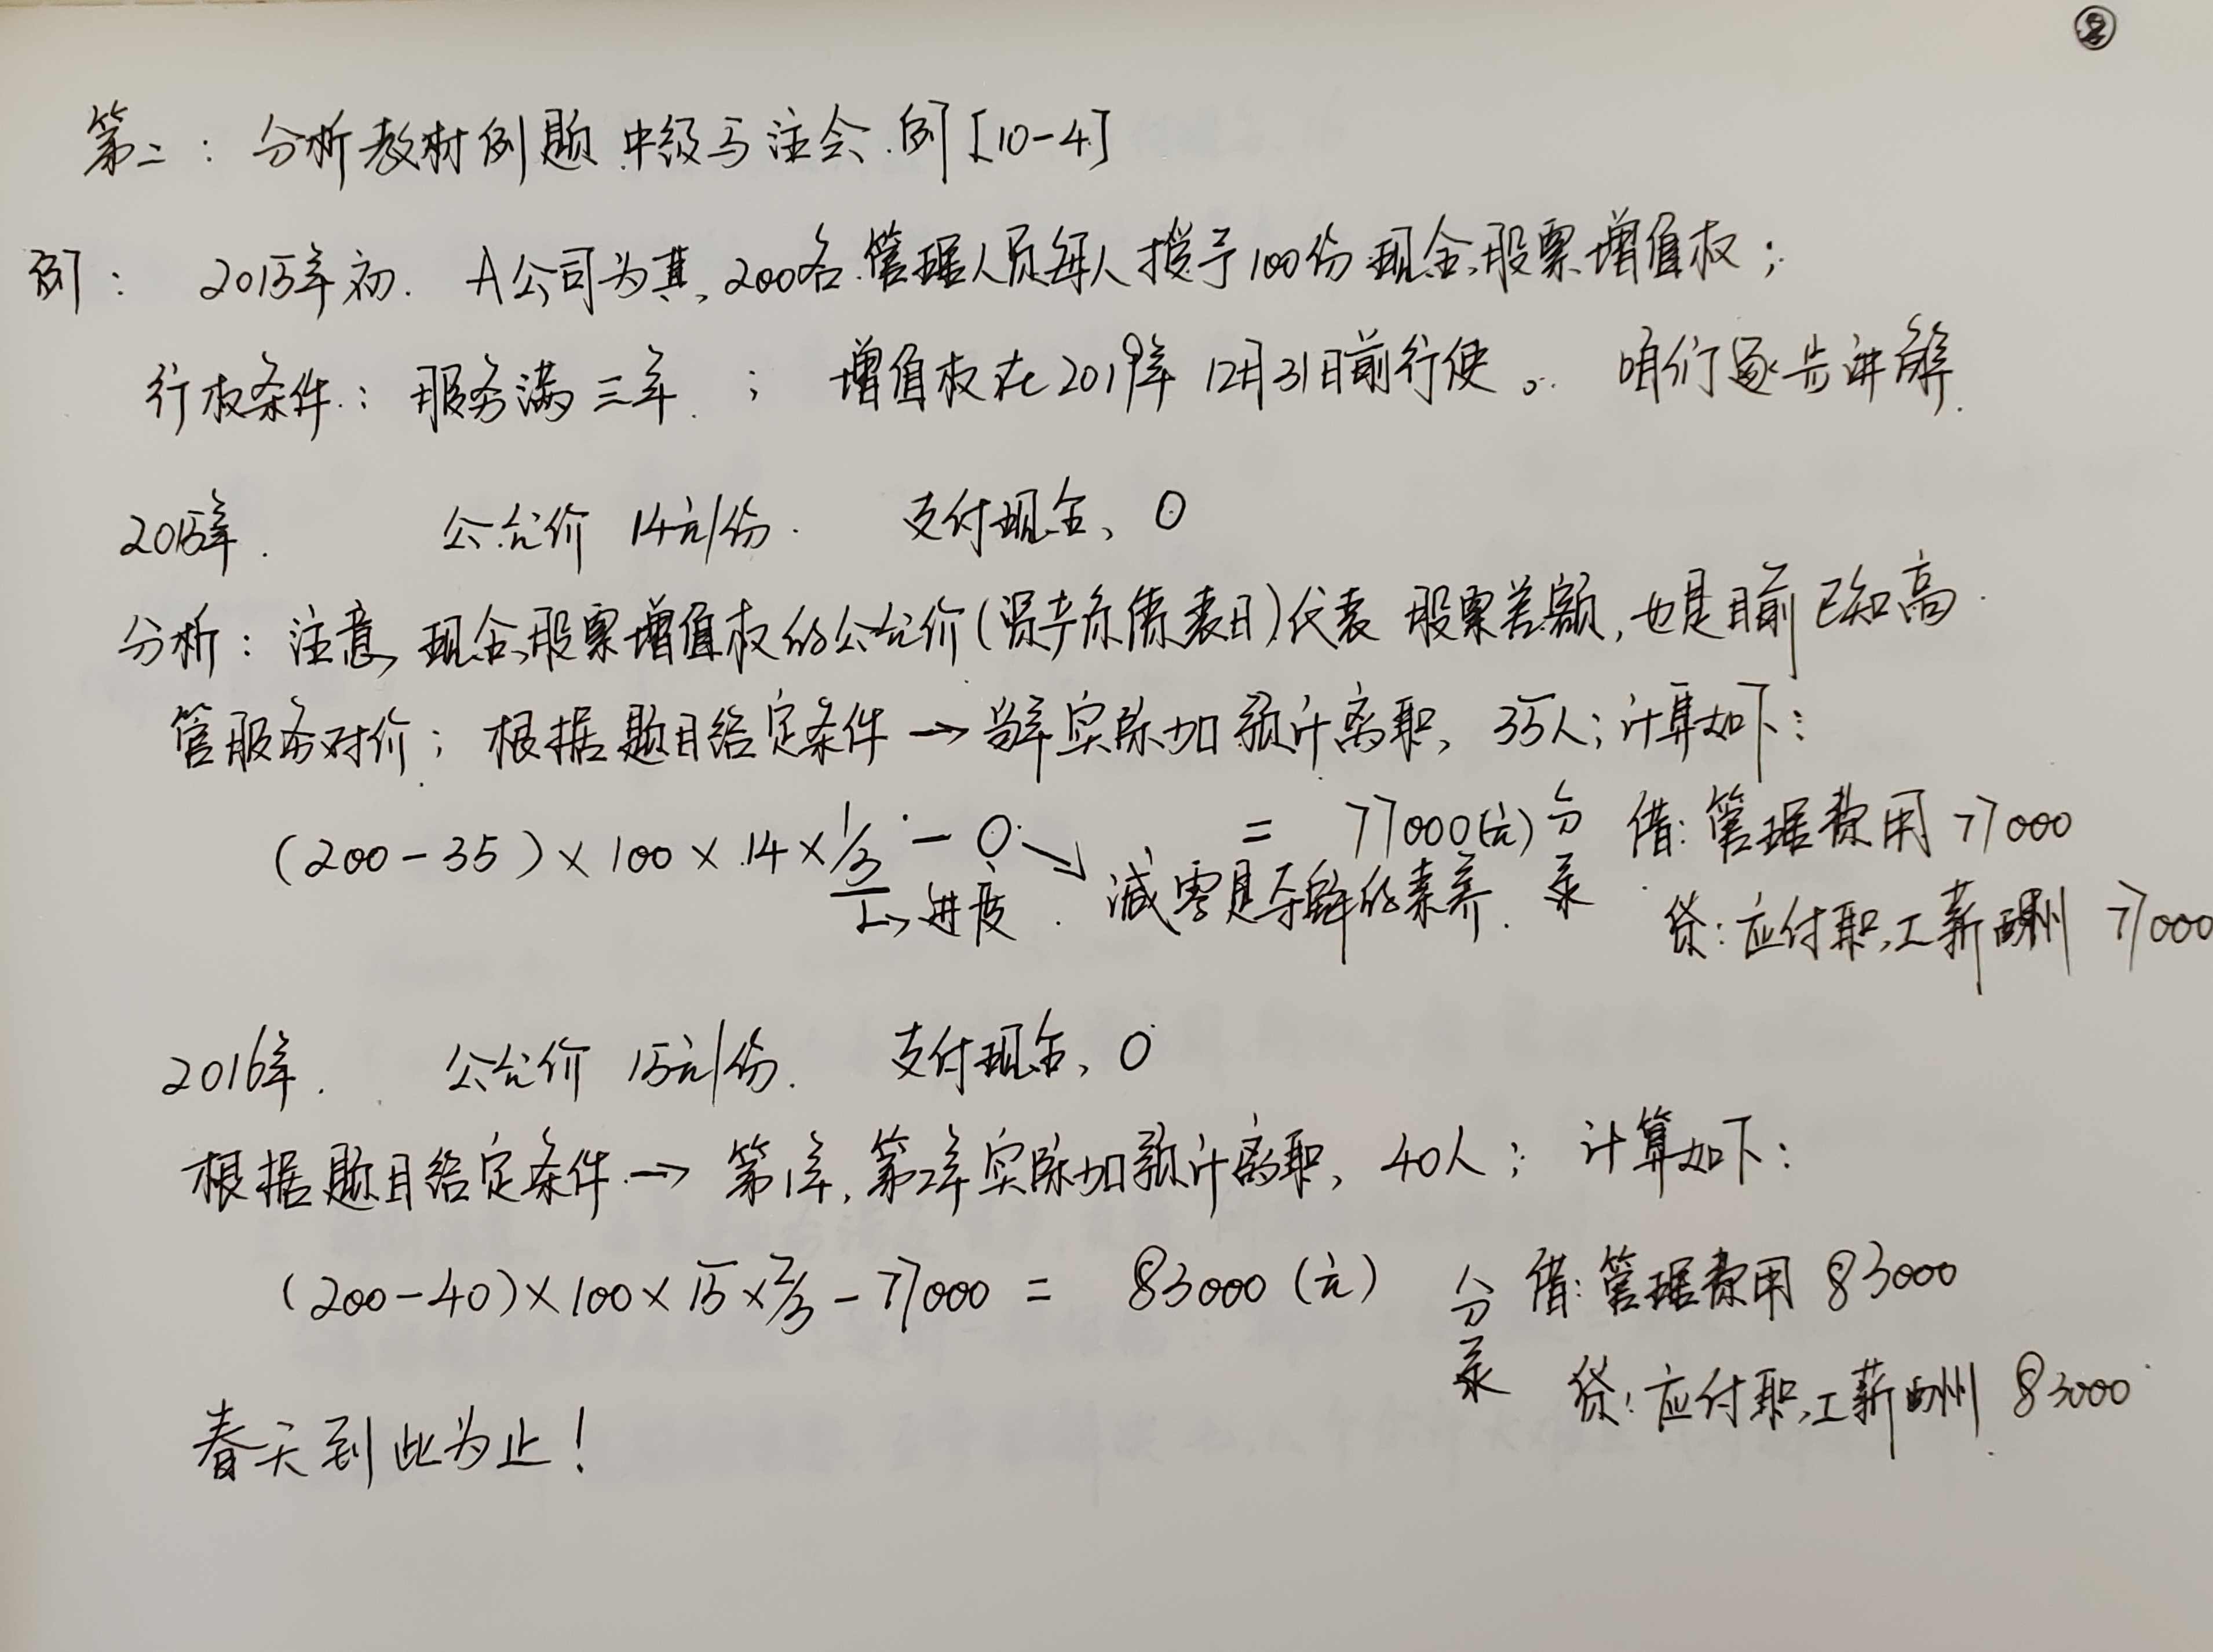 ②
第二：分析教材例题 中级与注会.例[10-4]
例：2015年初.A公司为其200名管理人员每人授予100份现金股票增值权；
行权条件：服务满三年；增值权在2019年12月31日前行使。咱们逐步讲解.
2015年. 公允价 14元/份. 支付现金 0
分析：注意 现金股票增值权的公允价(资产负债表日)代表 股票差额,也是目前已知高
管服务对价；根据题目给定条件→当年实际加预计离职 35人；计算如下：
(200-35)×100×14×1/3-0 = 77000(元) 分录 借:管理费用 77000
↳进度. 减零是专解的素养. 贷:应付职工薪酬 77000
2016年. 公允价 15元/份. 支付现金 0
根据题目给定条件→第1年,第2年实际加预计离职 40人； 计算如下：
(200-40)×100×15×2/3-77000= 83000(元) 分录 借:管理费用 83000
贷:应付职工薪酬 83000
春天到此为止！